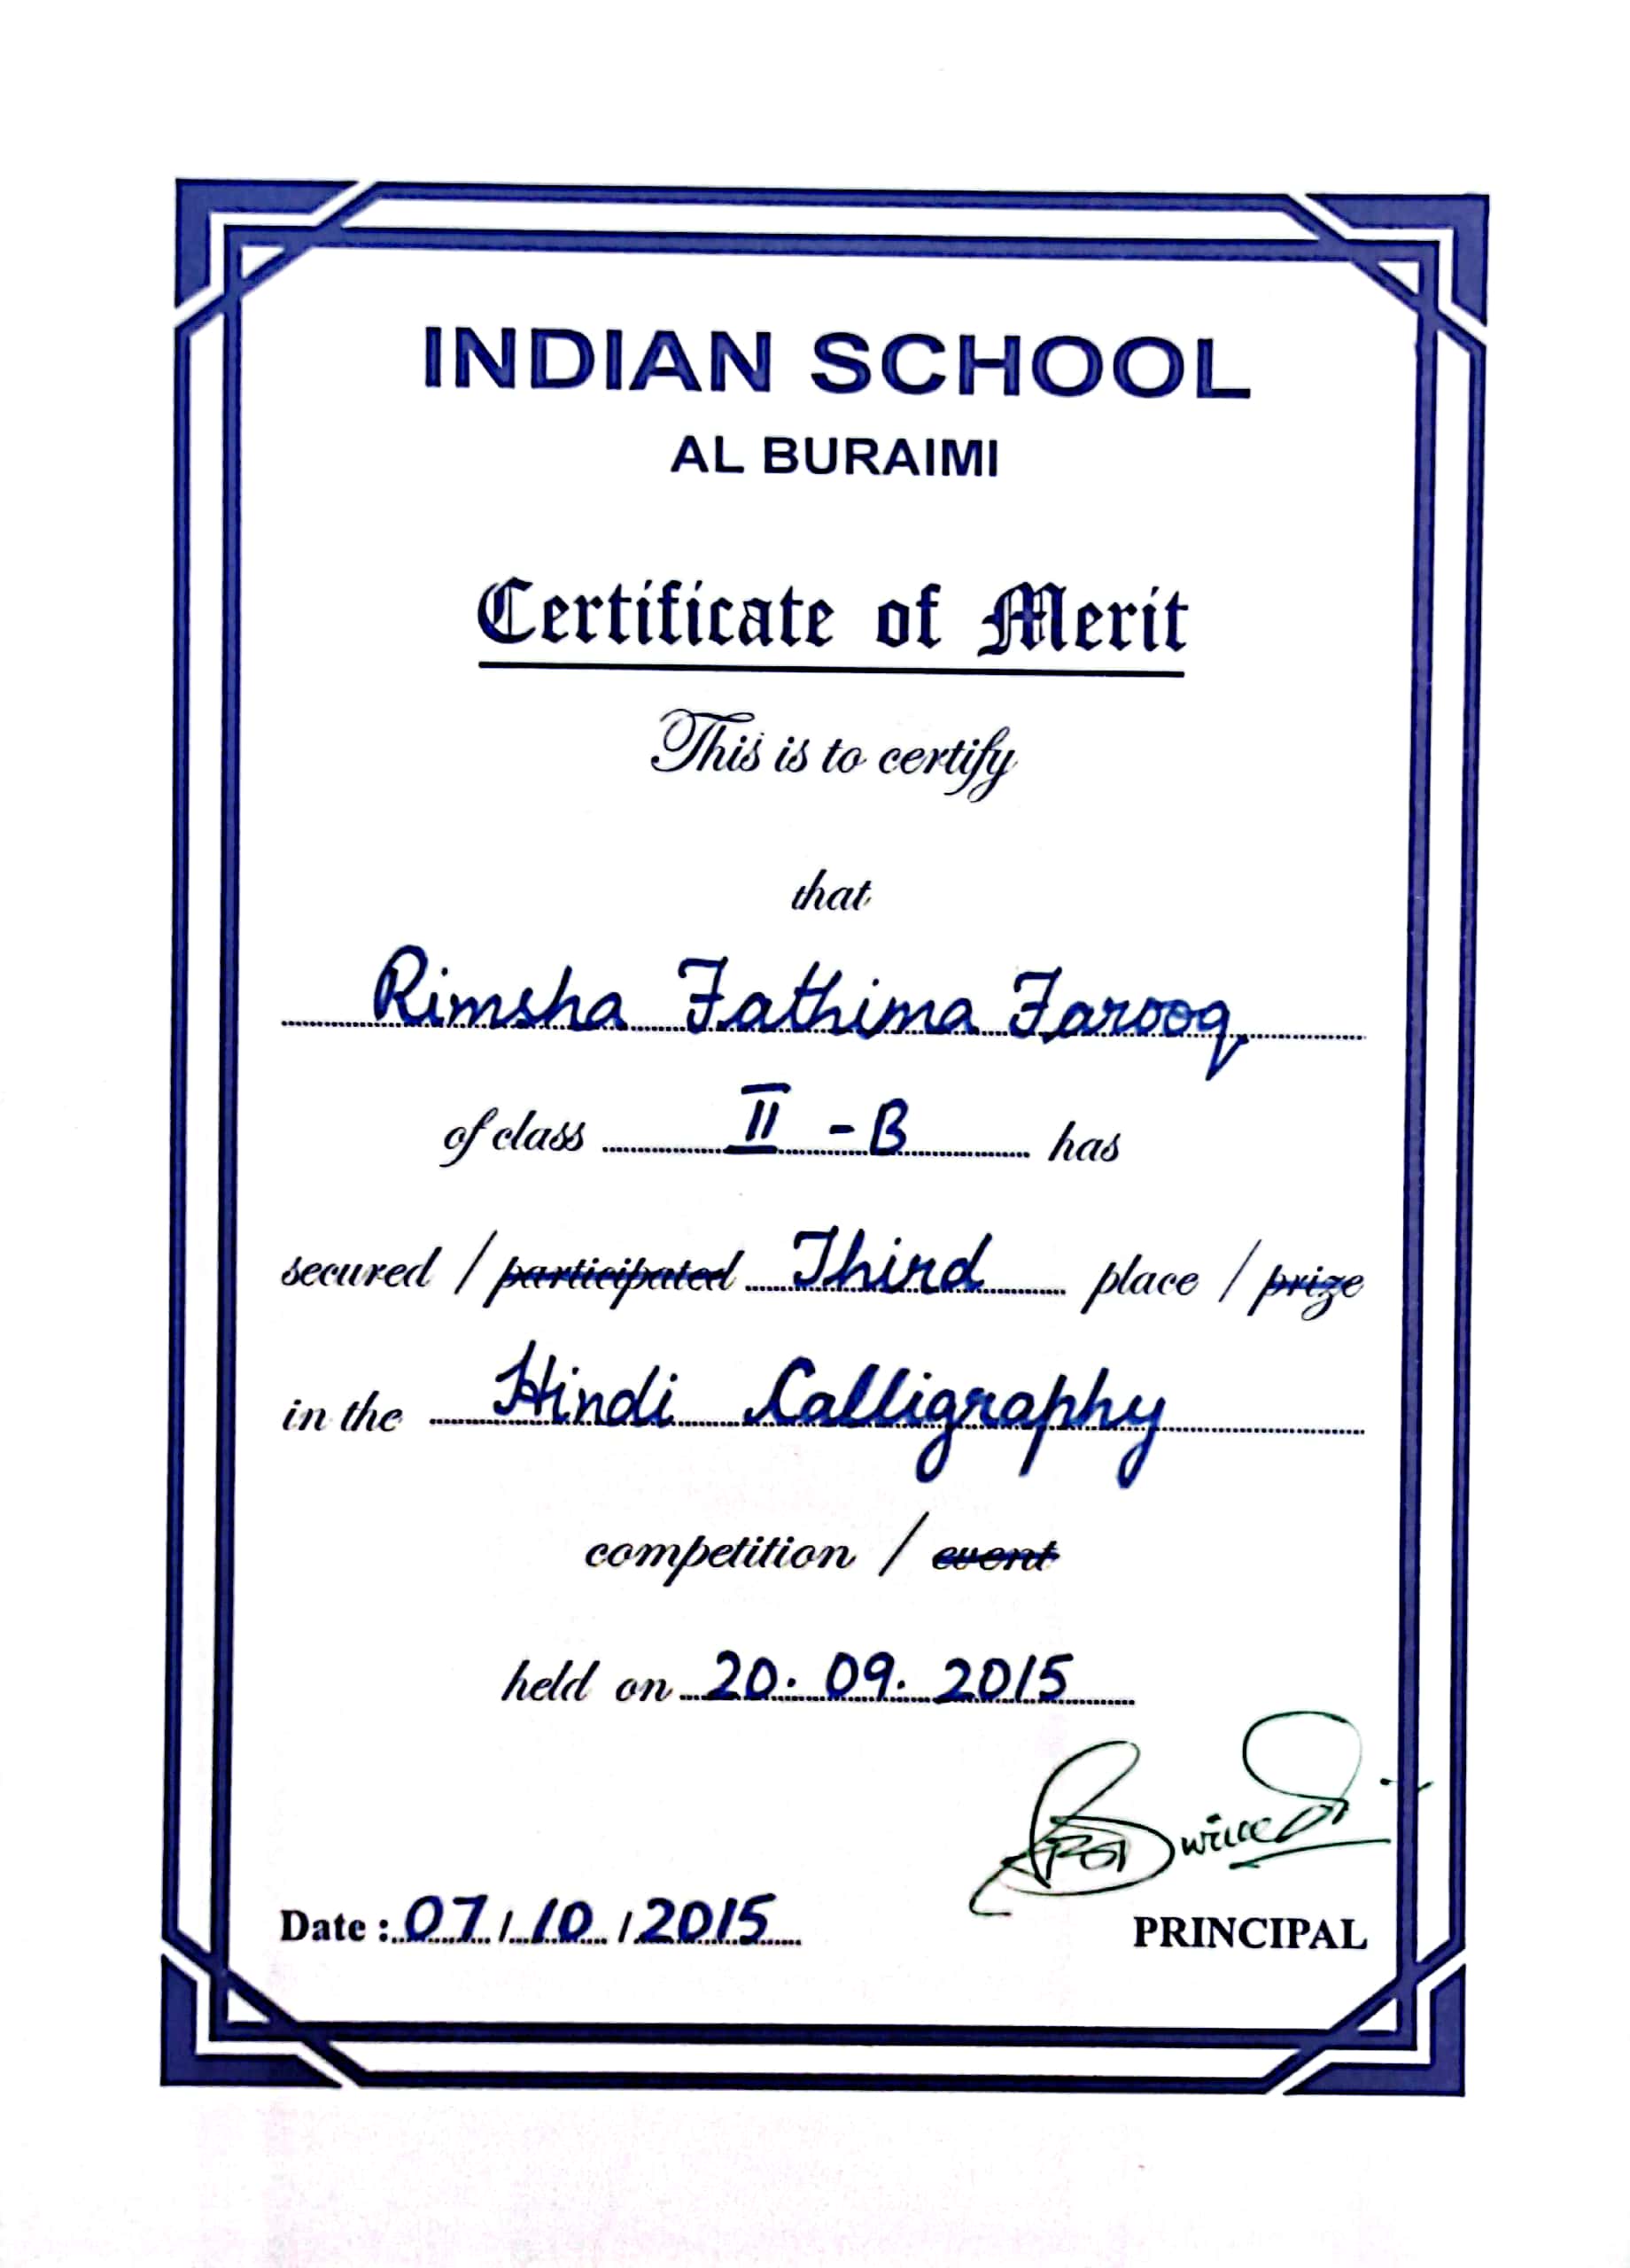 INDIAN SCHOOL
AL BURAIMI
Certificate of Merit
This is to certify
that
Rimsha Fathima Farooq
of class II - B has
secured / participated Third place / prize
in the Hindi Calligraphy
competition / event
held on 20. 09. 2015
Date : 07 / 10 / 2015
PRINCIPAL